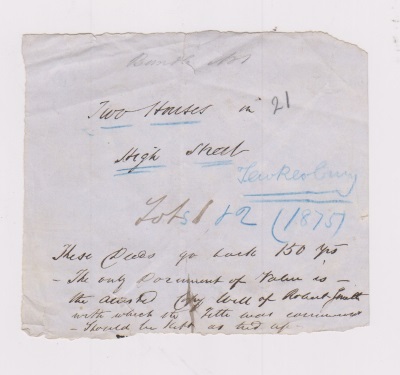 Bundle No 1
Two Houses in 21
High Street
Tewkesbury
Lots 1 & 2 (1875)
These Deeds go back 150 yrs
- The only Document of Value is -
the Copy Will of Robert Smith
with which the Title was
- Should be Kept as tied up -